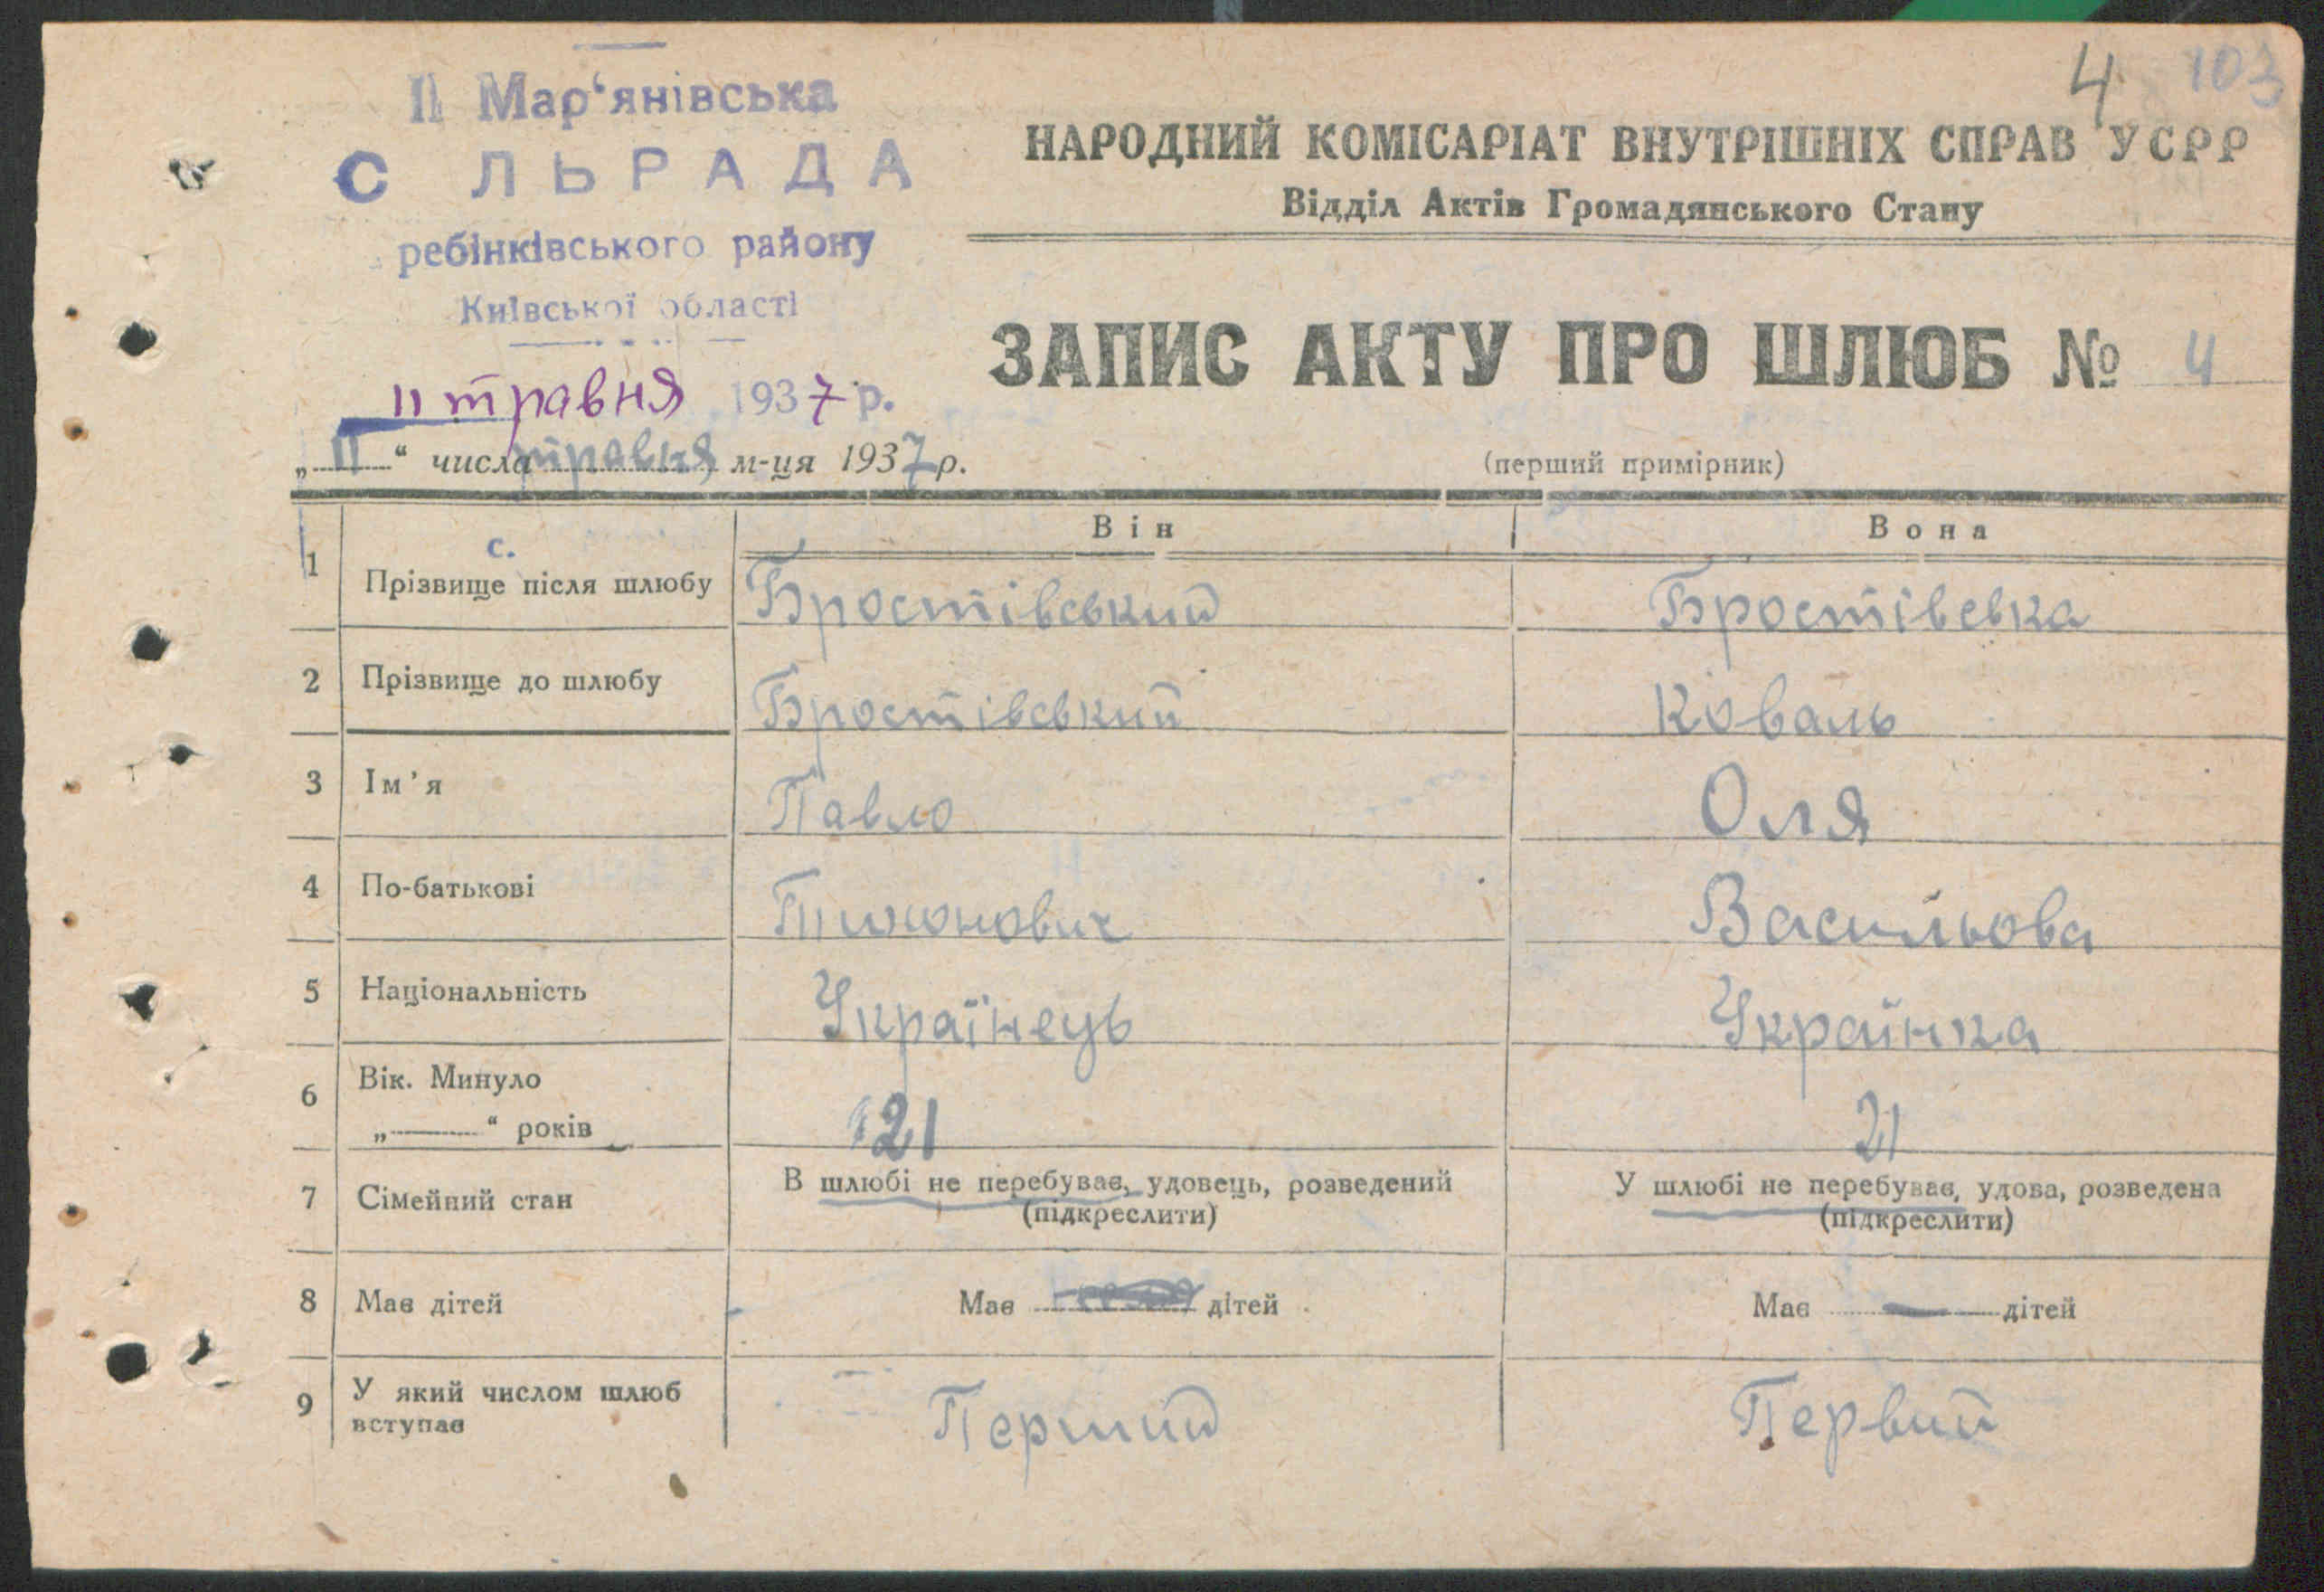 4 103
ІІ Мар‘янівська
С ЛЬРАДА
ребінківського району
Київської області
11 травня 1937 р.
НАРОДНИЙ КОМІСАРІАТ ВНУТРІШНІХ СПРАВ УСРР
Відділ Актів Громадянського Стану
ЗАПИС АКТУ ПРО ШЛЮБ № 4
„11“ числа травня м-ця 1937 р.
(перший примірник)
Він Вона
1 с. Прізвище після шлюбу Бростівський Бростівська
2 Прізвище до шлюбу Бростівський Коваль
3 Ім’я Павло Оля
4 По-батькові Тихонович Васильова
5 Національність Українець Українка
6 Вік. Минуло
„—“ років 21 21
7 Сімейний стан В шлюбі не перебуває, удовець, розведений У шлюбі не перебуває, удова, розведена
(підкреслити) (підкреслити)
8 Має дітей Має дітей Має — дітей
9 У який числом шлюб
вступає Перший Первий